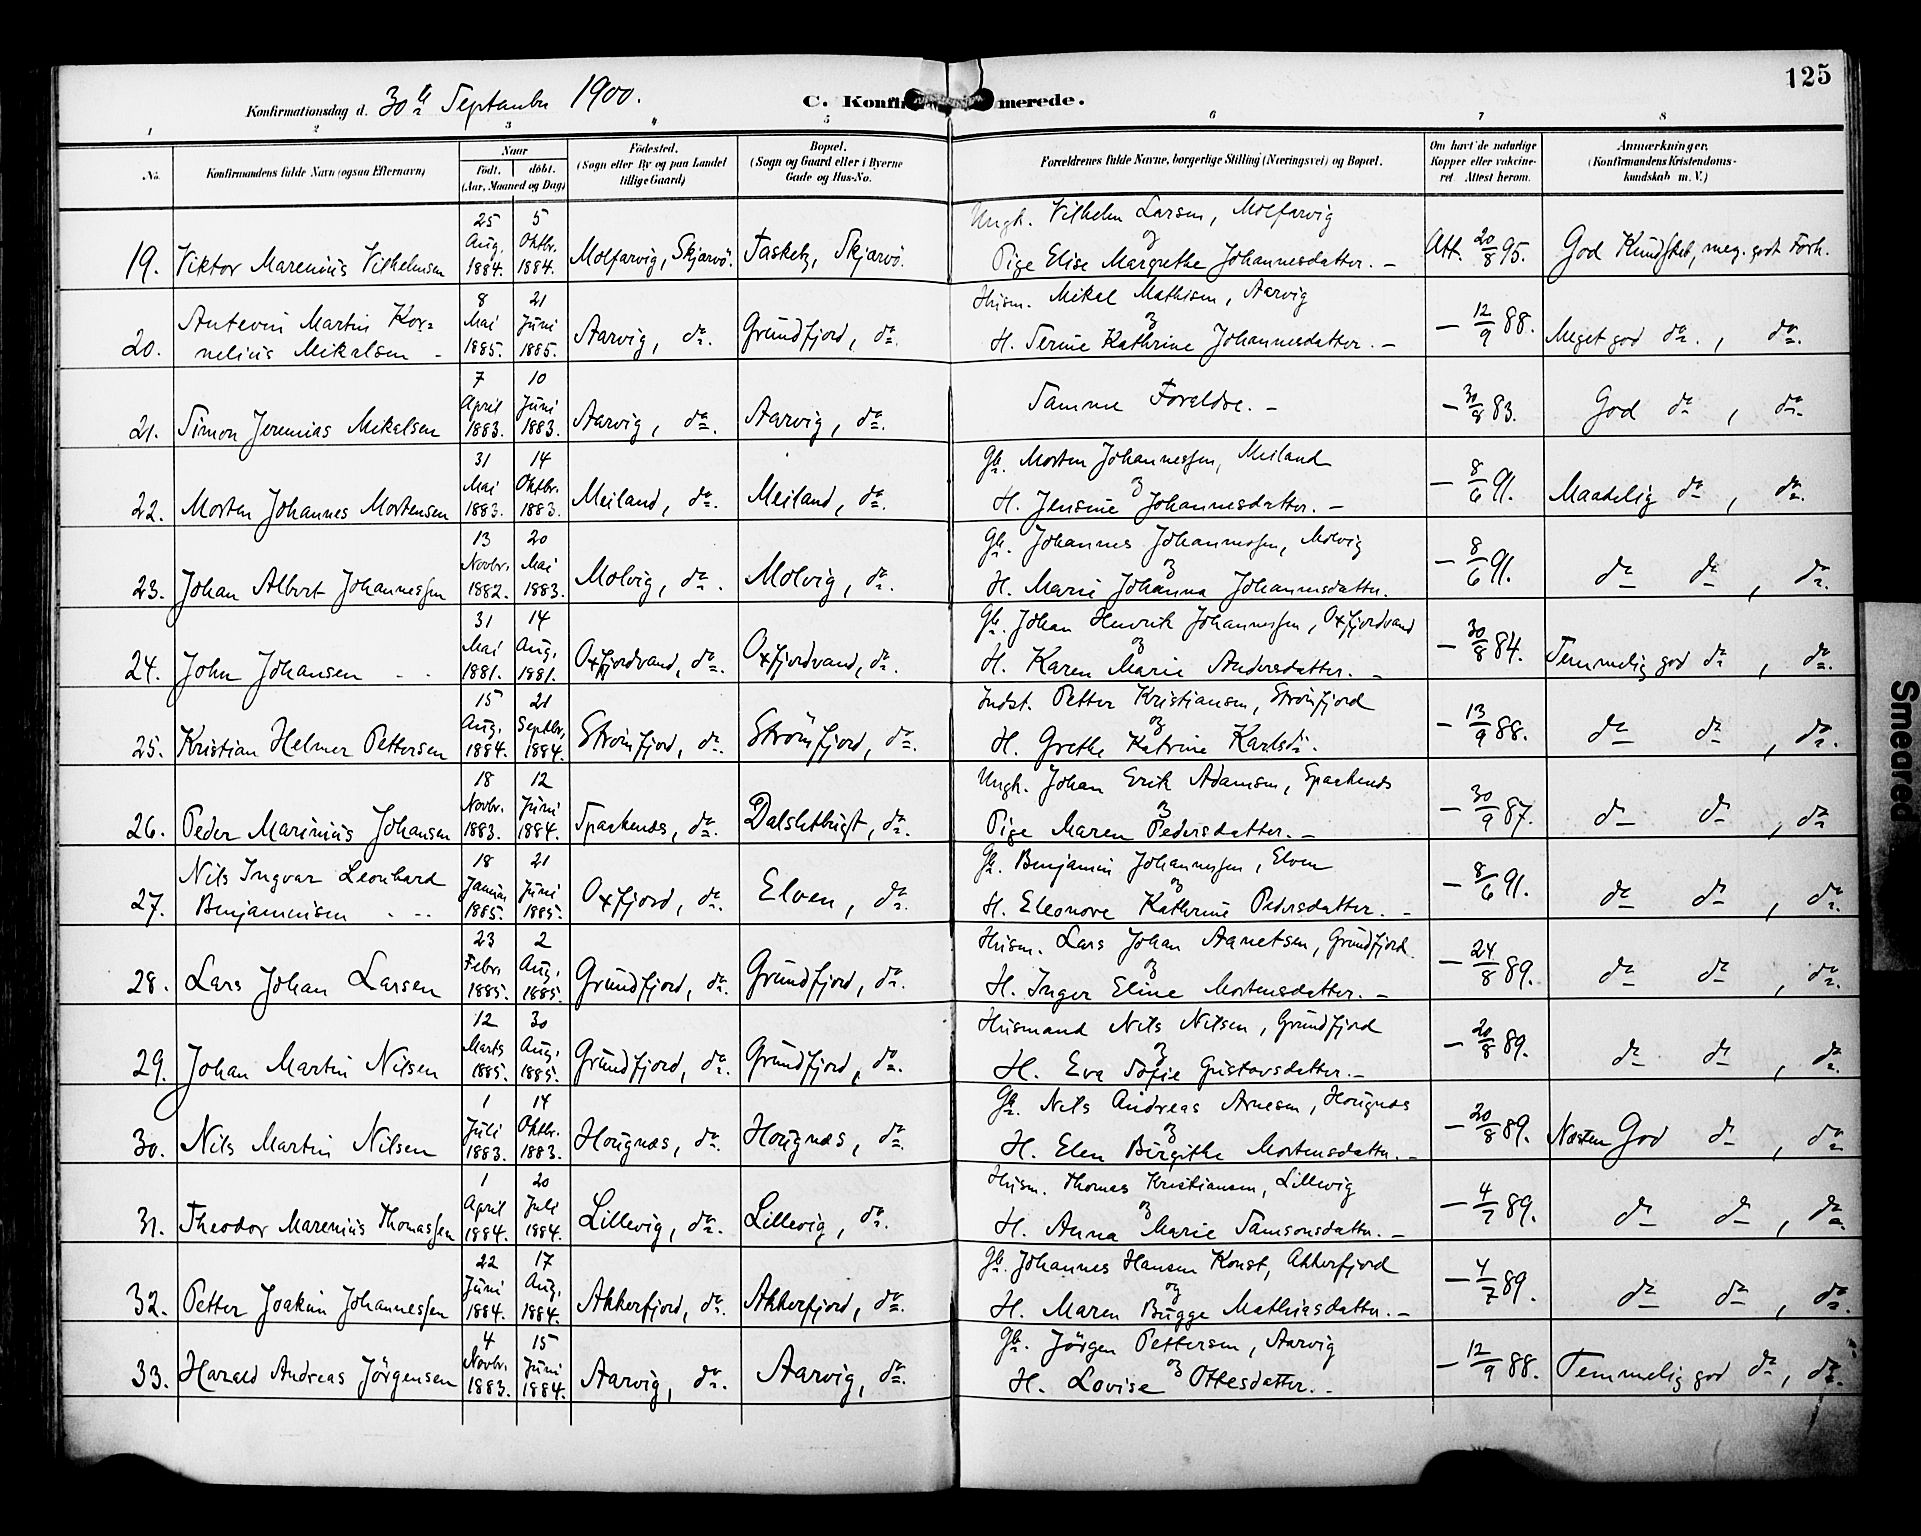 125
Konfirmationsdag d. 30te September 1900. C. Konfirmerede.
1 2 3 4 5 6 7 8
No. Konfirmandens fulde Navn (ogsaa Efternavn) Naar Født. døbt. (Aar, Maaned og Dag) Fødested. (Sogn eller By og paa Landet tillige Gaard) Bopæl. (Sogn og Gaard eller i Byerne Gade og Hus-No. Forældrenes fulde Navne, borgerlige Stilling (Næringsvei) og Bopæl. Om havt de naturlige Kopper eller vakcineret. Attest herom. Anmærkninger. (Konfirmandens Kristendomskundskab m. V.)
19. Viktor Marenius Vilhelmsen 25 Aug. 1884. 5 Oktbr. 1884. Molfarvig, Skjærvö. Taskeby, Skjærvö. Ungk. Vilhelm Larsen, Molfarvig
og
Pige Elise Margrethe Johannesdatter. – Att. 20/8 95. God Kundskab, meg. godt Forh.
20. Antevin Martin Kor=
nelius Mikalsen – 8 Mai 1885. 21 Juni 1885. Aarvig, do. Grundfjord, do. Husm. Mikal Mathisen, Aarvig
og
H. Serine Kathrine Johannesdatter. – – 12/9 88. Meget god do., do.
21. Simon Jeremias Mikalsen 7 April 1883. 10 Juni 1883. Aarvig, do. Aarvig, do. Samme Foreldre. – – 30/8 83. God do, do.
22. Morten Johannes Mortensen 31 Mai 1883. 14 Oktbr. 1883. Meiland, do. Meiland, do. Gb. Morten Johannessen, Meiland
og
H. Jensine Johannesdatter. – – 8/6 91. Maadelig do, do.
23. Johan Albert Johannessen 13 Novbr. 1882. 20 Mai 1883. Molvig, do. Molvig, do. Gb. Johannes Johannessen, Molvig
og
H. Marie Johanna Johannesdatter. – 8/6 91. do do, do.
24. John Johansen 31 Mai 1881. 14 Aug. 1881. Oxfjordvand, do. Oxfjordvand, do. Gb. Johan Henrik Johannessen, Oxfjordvand
og
H. Karen Marie Andersdatter. – – 30/8 84. Temmelig god do, do.
25. Kristian Helmer Pettersen 15 Aug. 1884. 21 Septbr. 1884. Strömfjord, do. Strömfjord, do. Indst. Petter Kristiansen, Strömfjord
og
H. Grethe Katrine Karlsd. – 13/9 88. do do, do.
26. Peder Marinius Johansen 18 Novbr. 1883. 12 Juni 1884. Spaakenæs, do. Dalsletbugt, do. Ungk. Johan Erik Adamsen, Spaakenæs
og
Pige Maren Pedersdatter. – – 30/9 87. do do, do
27. Nils Ingvar Leonhard
Benjaminsen 18 Januar 1885. 21 Juni 1885. Oxfjord, do. Elven, do. Gb. Benjamin Johannessen, Elven
og
H. Eleonore Kathrine Pedersdatter. – – 8/6 91. do do, do.
28. Lars Johan Larsen 23 Febr. 1885. 2 Aug. 1885. Grundfjord, do. Grundfjord, do. Husm. Lars Johan Aanetsen, Grundfjord.
og
H. Inger Eline Mortensdatter. – – 24/8 89. do do, do.
29. Johan Martin Nilsen 12 Marts 1885. 30 Aug. 1885. Grundfjord, do. Grundfjord, do. Husmand Nils Nilsen, Grundfjord
og
H. Eva Sofie Gustavsdatter. – – 20/8 89. do do, do.
30. Nils Martin Nilsen 1 Juli 1883. 14 Oktbr. 1883. Hougnæs, do. Hougnæs, do. Gb. Nils Andreas Arnesen, Hougnæs
og
H. Elen Birgithe Mortensdatter. – – 20/8 89. Næsten God do, do.
31. Theodor Marenius Thomassen 1 April 1884. 20 Juli 1884. Lillevig, do. Lillevig, do. Husm. Thomas Kristiansen, Lillevig
og
H. Anna Marie Samsonsdatter. – – 4/7 89. do do, do.
32. Petter Joakim Johannessen 22 Juni 1884. 17 Aug. 1884. Akkerfjord, do. Akkerfjord, do. Gb. Johannes Hansen Konst, Akkerfjord
og
H. Maren Bugge Mathiasdatter. – – 4/7 89. do do, do.
33. Harald Andreas Jörgensen 4 Novbr. 1883. 15 Juni 1884. Aarvig, do. Aarvig, do. Gb. Jörgen Pettersen, Aarvig
og
H. Lovise Ottesdatter. – – 12/9 88. Temmelig god do, do.
Smeared